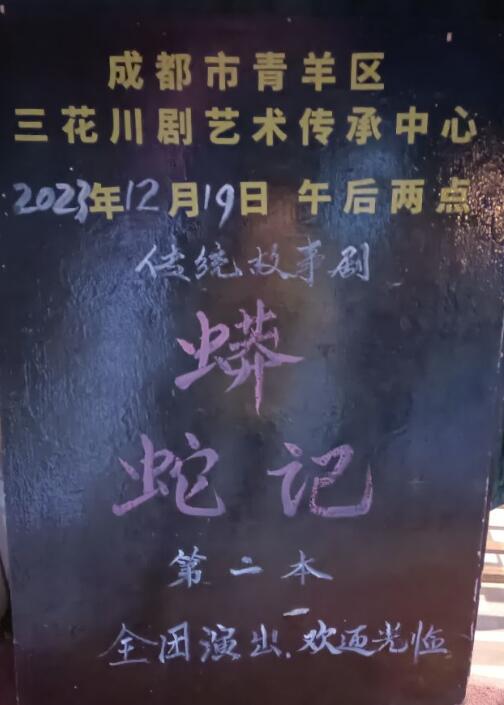 成都市青羊区
三花川剧艺术传承中心
2023年12月19日 午后两点
传统故事剧
蟒
蛇记
第二本
全团演出.欢迎光临